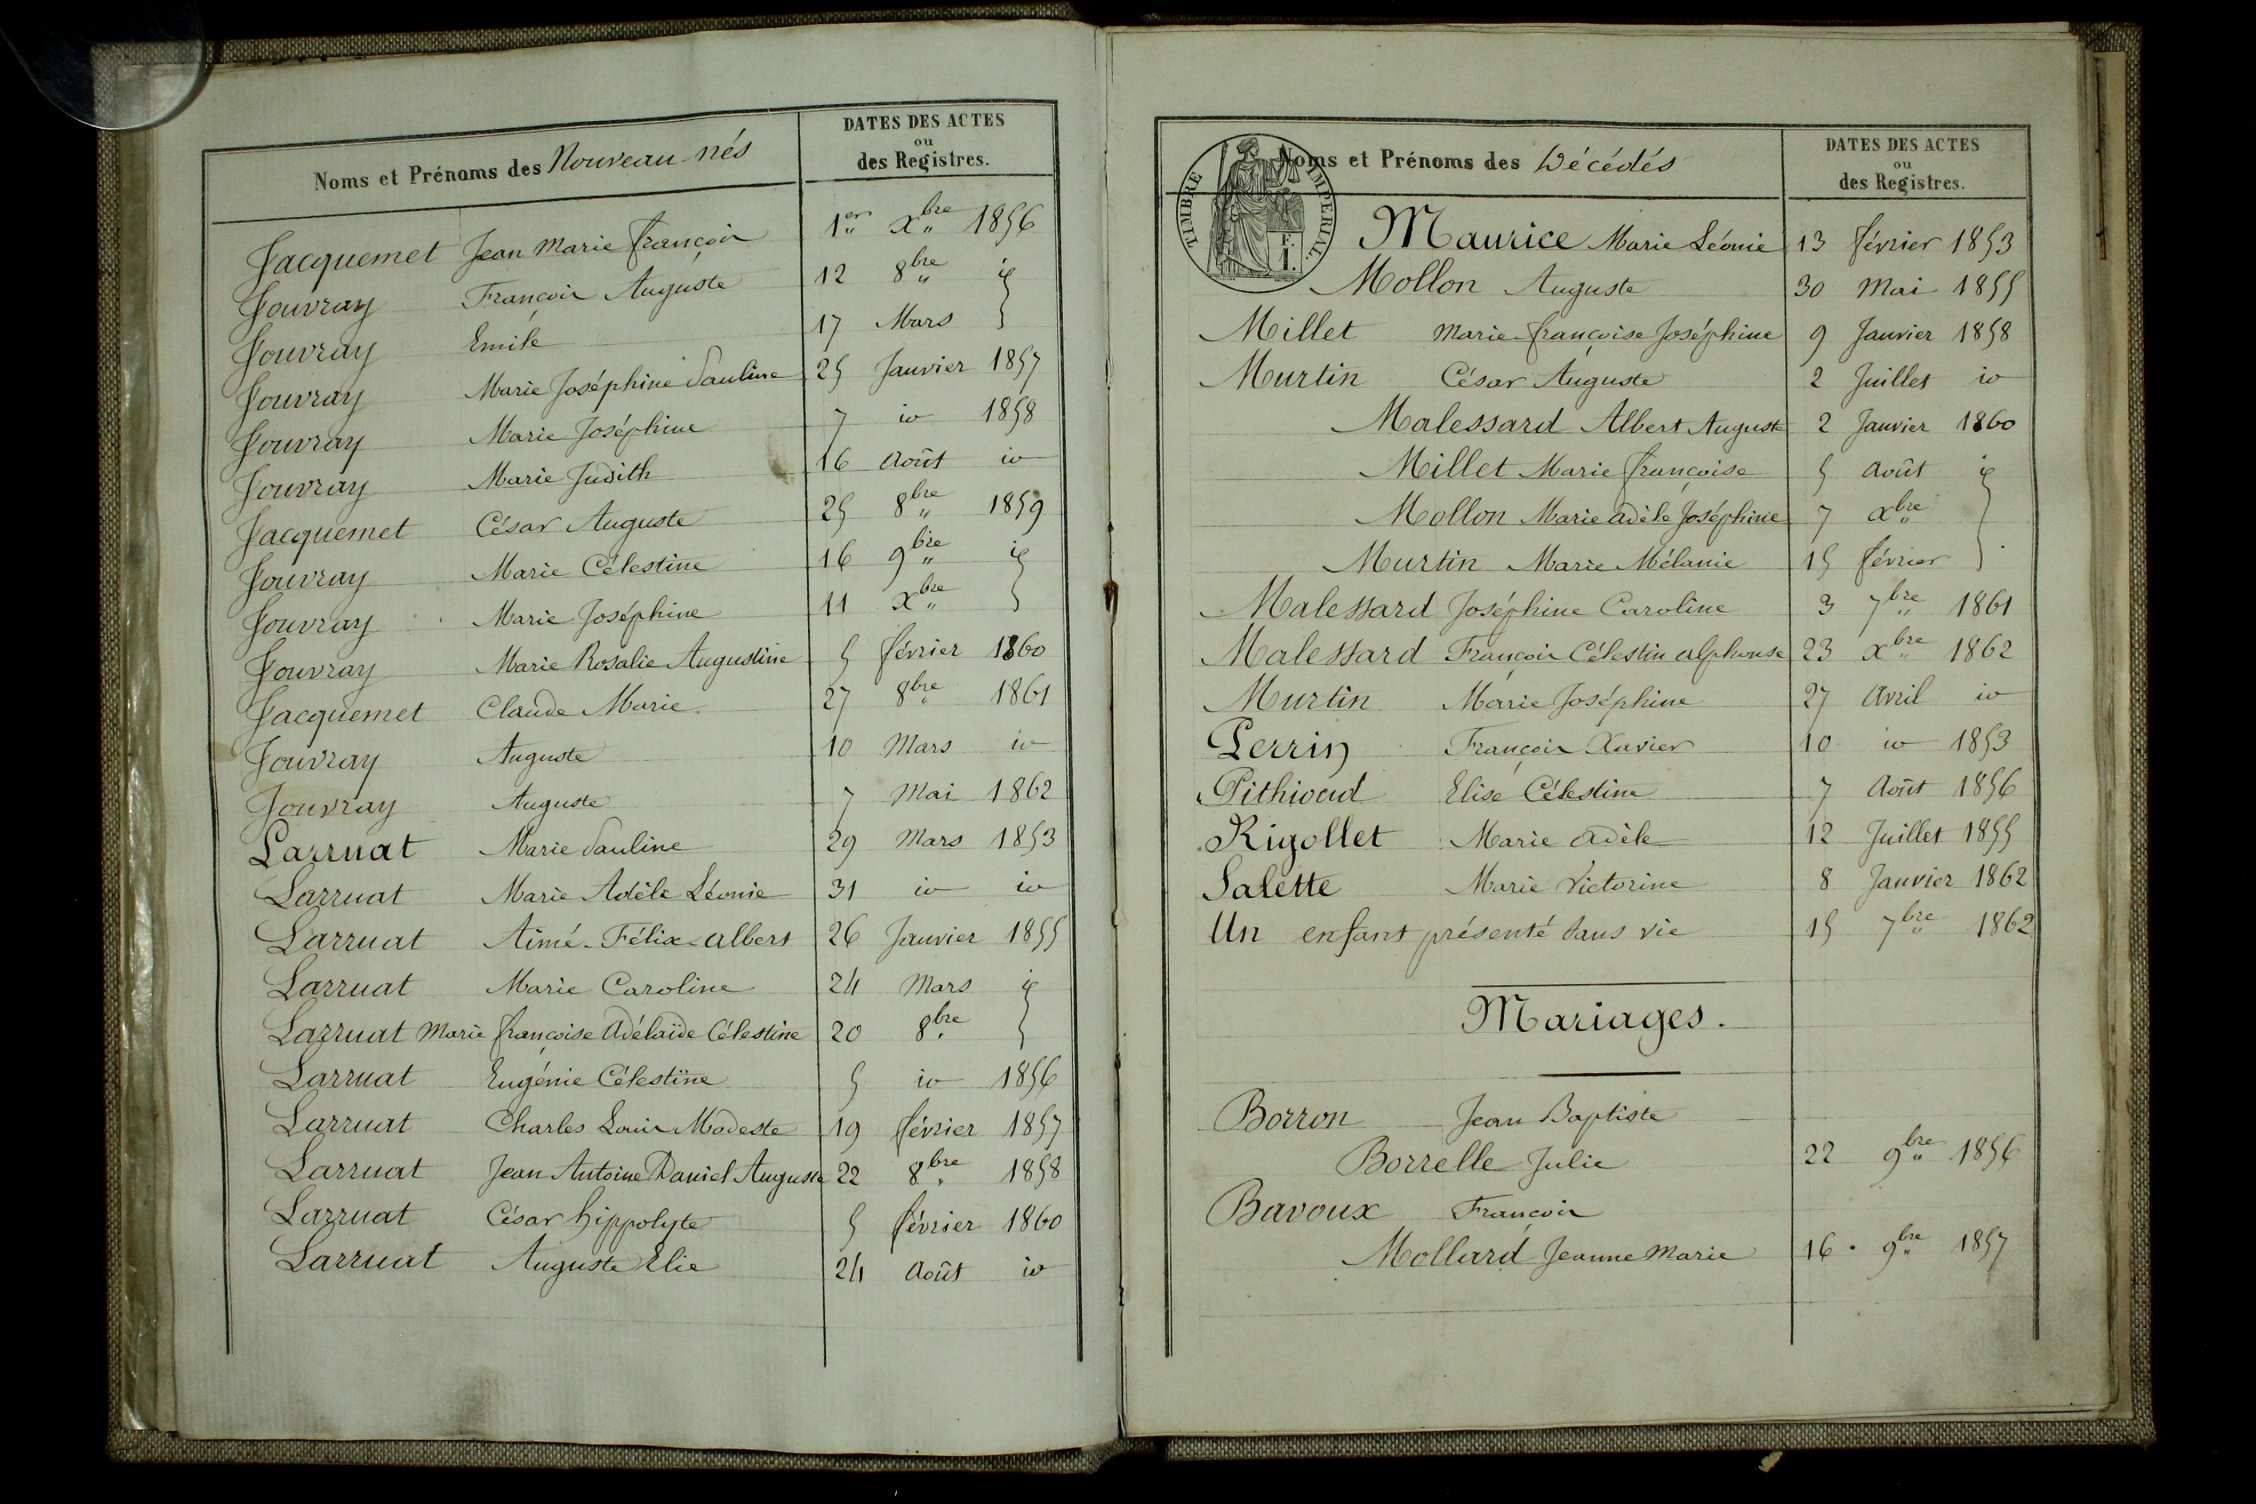 Noms et Prénoms des Nouveau-nés
DATES DES ACTES
ou
des Registres.
Jacquemet Jean Marie François 1er xbre 1856
Jouvray François Auguste 12 8bre id
Jouvray Emile 17 Mars
Jouvray Marie Joséphine Pauline 25 Janvier 1857
Jouvray Marie Joséphine 7 id 1858
Jouvray Marie Judith 16 Août id
Jacquemet César Auguste 25 8bre 1859
Jouvray Marie Célestine 16 9bre id
Jouvray Marie Joséphine 11 xbre
Jouvray Marie Rosalie Augustine 5 février 1860
Jacquemet Claude Marie 27 8bre 1861
Jouvray Auguste 10 Mars id
Jouvray Auguste 7 Mai 1862
Larruat Marie Pauline 29 Mars 1853
Larruat Marie Adèle Léonie 31 id id
Larruat Aimé-Félix-Albert 26 Janvier 1855
Larruat Marie Caroline 24 Mars id
Larruat Marie françoise Adélaïde Célestine 20 8bre
Larruat Eugénie Célestine 5 id 1856
Larruat Charles Louis Modeste 19 février 1857
Larruat Jean Antoine Daniel Auguste 22 8bre 1858
Larruat César hippolyte 5 février 1860
Larruat Auguste Elie 24 Août id
TIMBRE IMPERIAL.
F.
1.
Noms et Prénoms des Décédés
DATES DES ACTES
ou
des Registres.
Maurice Marie Léonie 13 février 1853
Mollon Auguste 30 Mai 1855
Millet Marie-françoise Joséphine 9 Janvier 1858
Murtin César Auguste 2 Juillet id
Malessard Albert Auguste 2 Janvier 1860
Millet Marie françoise 5 Août id
Mollon Marie Adèle Joséphine 7 xbre
Murtin Marie Mélanie 15 février
Malessard Joséphine Caroline 3 7bre 1861
Malessard François Célestin Alphonse 23 xbre 1862
Murtin Marie Joséphine 27 Avril id
Perrin François Xavier 10 id 1853
Pithioud Elise Célestine 7 Août 1856
Rigollet Marie Adèle 12 Juillet 1855
Salette Marie Victorine 8 Janvier 1862
Un enfant présenté sans vie 15 7bre 1862
Mariages.
Borron Jean Baptiste
Borrelle Julie 22 9bre 1856
Bavoux François
Mollard Jeanne Marie 16 9bre 1857